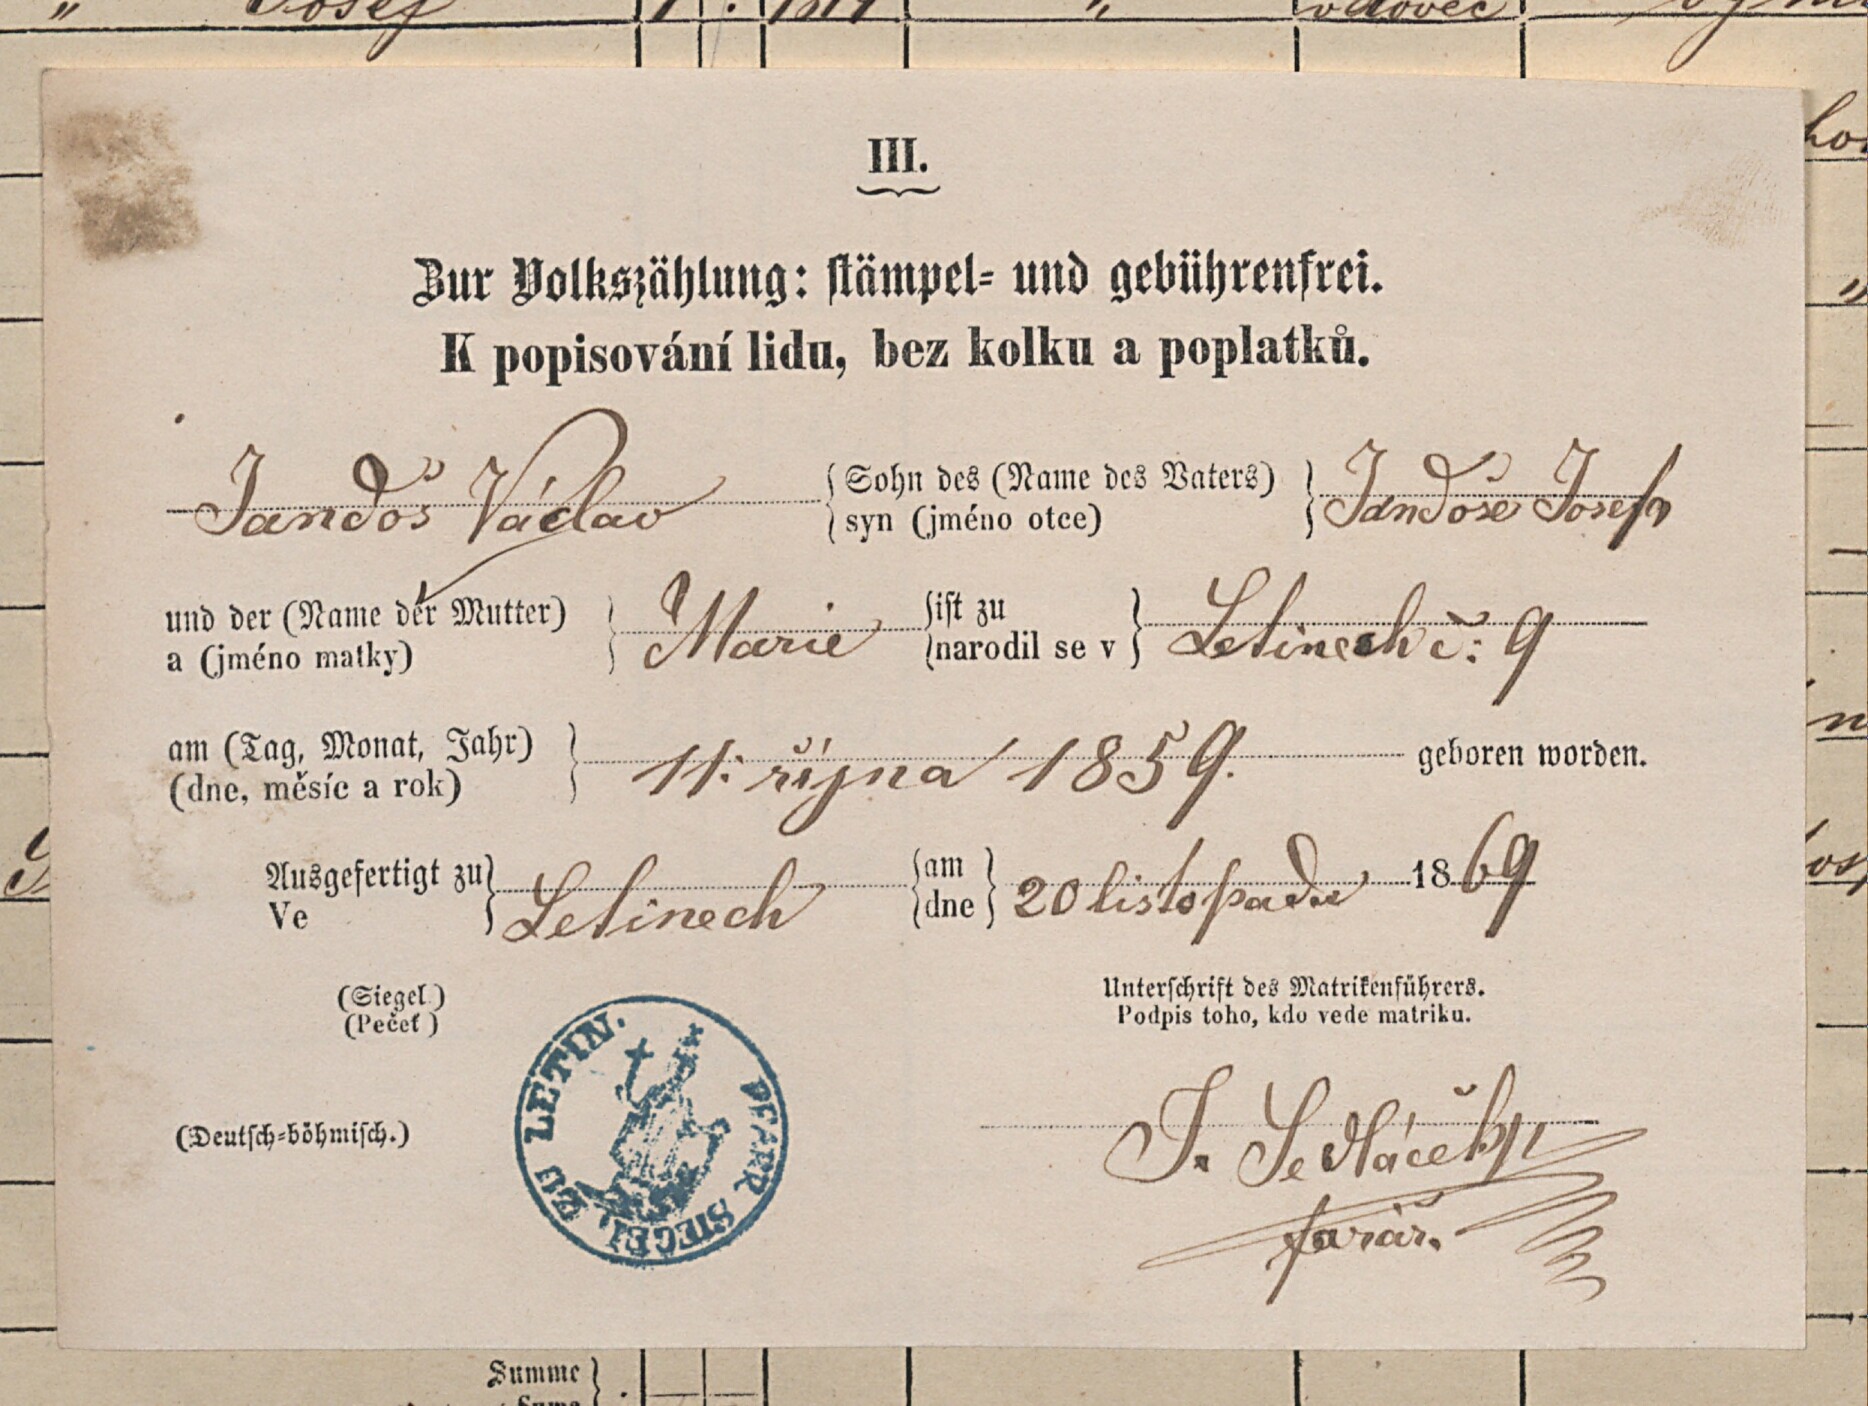 " Josef 1 . "
vdovec
III.
Zur Volkszählung: stämpel- und gebührenfrei.
K popisování lidu, bez kolku a poplatků.
Jandoš Václav { Sohn des (Name des Vaters) } Jandoše Josefa
syn (jméno otce)
und der (Name der Mutter) } Marie { ist zu } Letinech č: 9
a (jméno matky) narodil se v
am (Tag, Monat, Jahr) } 11. října 1859. geboren worden.
(dne, měsíc a rok)
Ausgefertigt zu } Letinech { am } 20 listopadu 1869
Ve dne
(Siegel.)
(Pečeť)
Unterschrift des Matrikenführers.
Podpis toho, kdo vede matriku.
PFARR SIEGEL ZU LETIN.
(Deutsch-böhmisch.)
J. Sedláček
farář.
Summe }